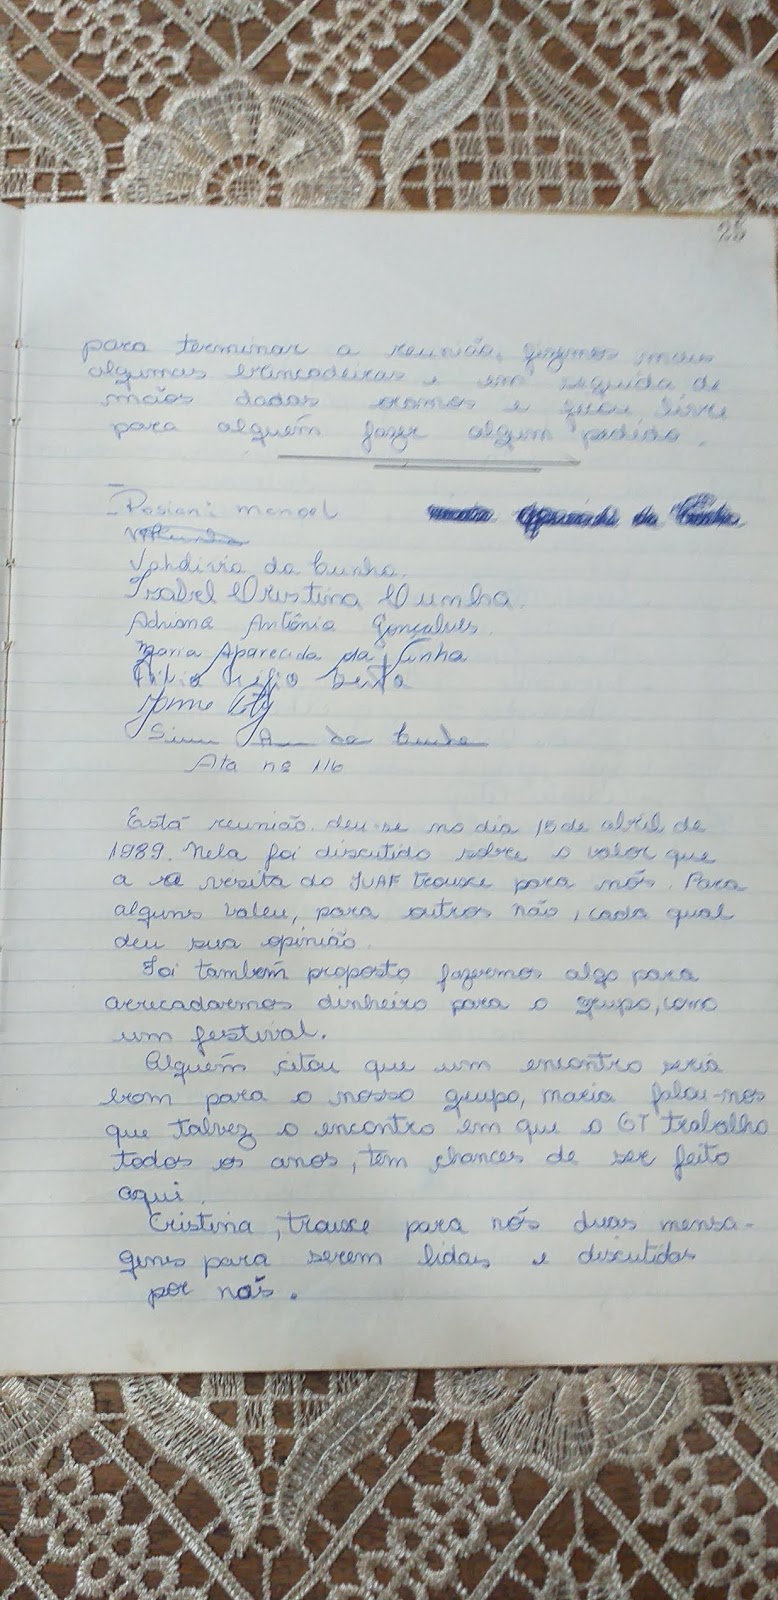 25
para terminar a reunião, fizemos mais
algumas brincadeiras e em seguida de
mãos dadas oramos e ficou livre
para alguém fazer algum pedido.
Rosiani mengel
da Cunha.
Izabel Cristina Cunha.
Adriana Antônia Gonçalves.
Maria Aparecida da Cunha
da Cunha
Ata nº 116
Está reunião deu-se no dia 15 de abril de
1989. Nela foi discutido sobre o valor que
a visita do JUAF trouxe para nós. Para
alguns valeu, para outros não, cada qual
deu sua opinião.
Foi também proposto fazermos algo para
arrecadarmos dinheiro para o grupo, como
um festival.
Alguém citou que um encontro seria
bom para o nosso grupo, maria falou-nos
que talvez o encontro em que o GT trabalho
todos os anos, tem chances de ser feito
aqui.
Cristina, trouxe para nós duas mensa-
gens para serem lidas e discutidas
por nós.